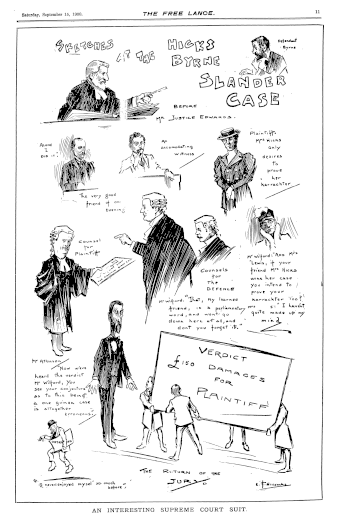 Saturday, September 15, 1900.
THE FREE LANCE.
11
SKETCHES AT THE HICKS
BYRNE
SLANDER
CASE
Defendant
Byrne
BEFORE
Mr JUSTICE EDWARDS.
An
accommodating
witness
The very good
friend of
Plaintiff
Mrs Hicks
only
desires
to
prove
her
karrackter
Counsel
for
Plaintiff
Counsels
for
The
DEFENCE
Mr Wilford: "That, my learned
friend, is a parliamentary
word, and won't go
down here at all, and
don't you forget it."
Mr Wilford: "And Mrs
Lewis, if your
friend Mrs Hicks
wins her case
you intend to
prove your
karrackter too?"
"I haven't
quite made up my
mind"
Now we've
heard the verdict
Mr Wilford, you
see your
as to this being
a one guinea case
is altogether
erroneous.
VERDICT
£150 DAMAGES
FOR
PLAINTIFF
"I never enjoyed myself so much
before"
THE RETURN OF THE
JURY
AN INTERESTING SUPREME COURT SUIT.